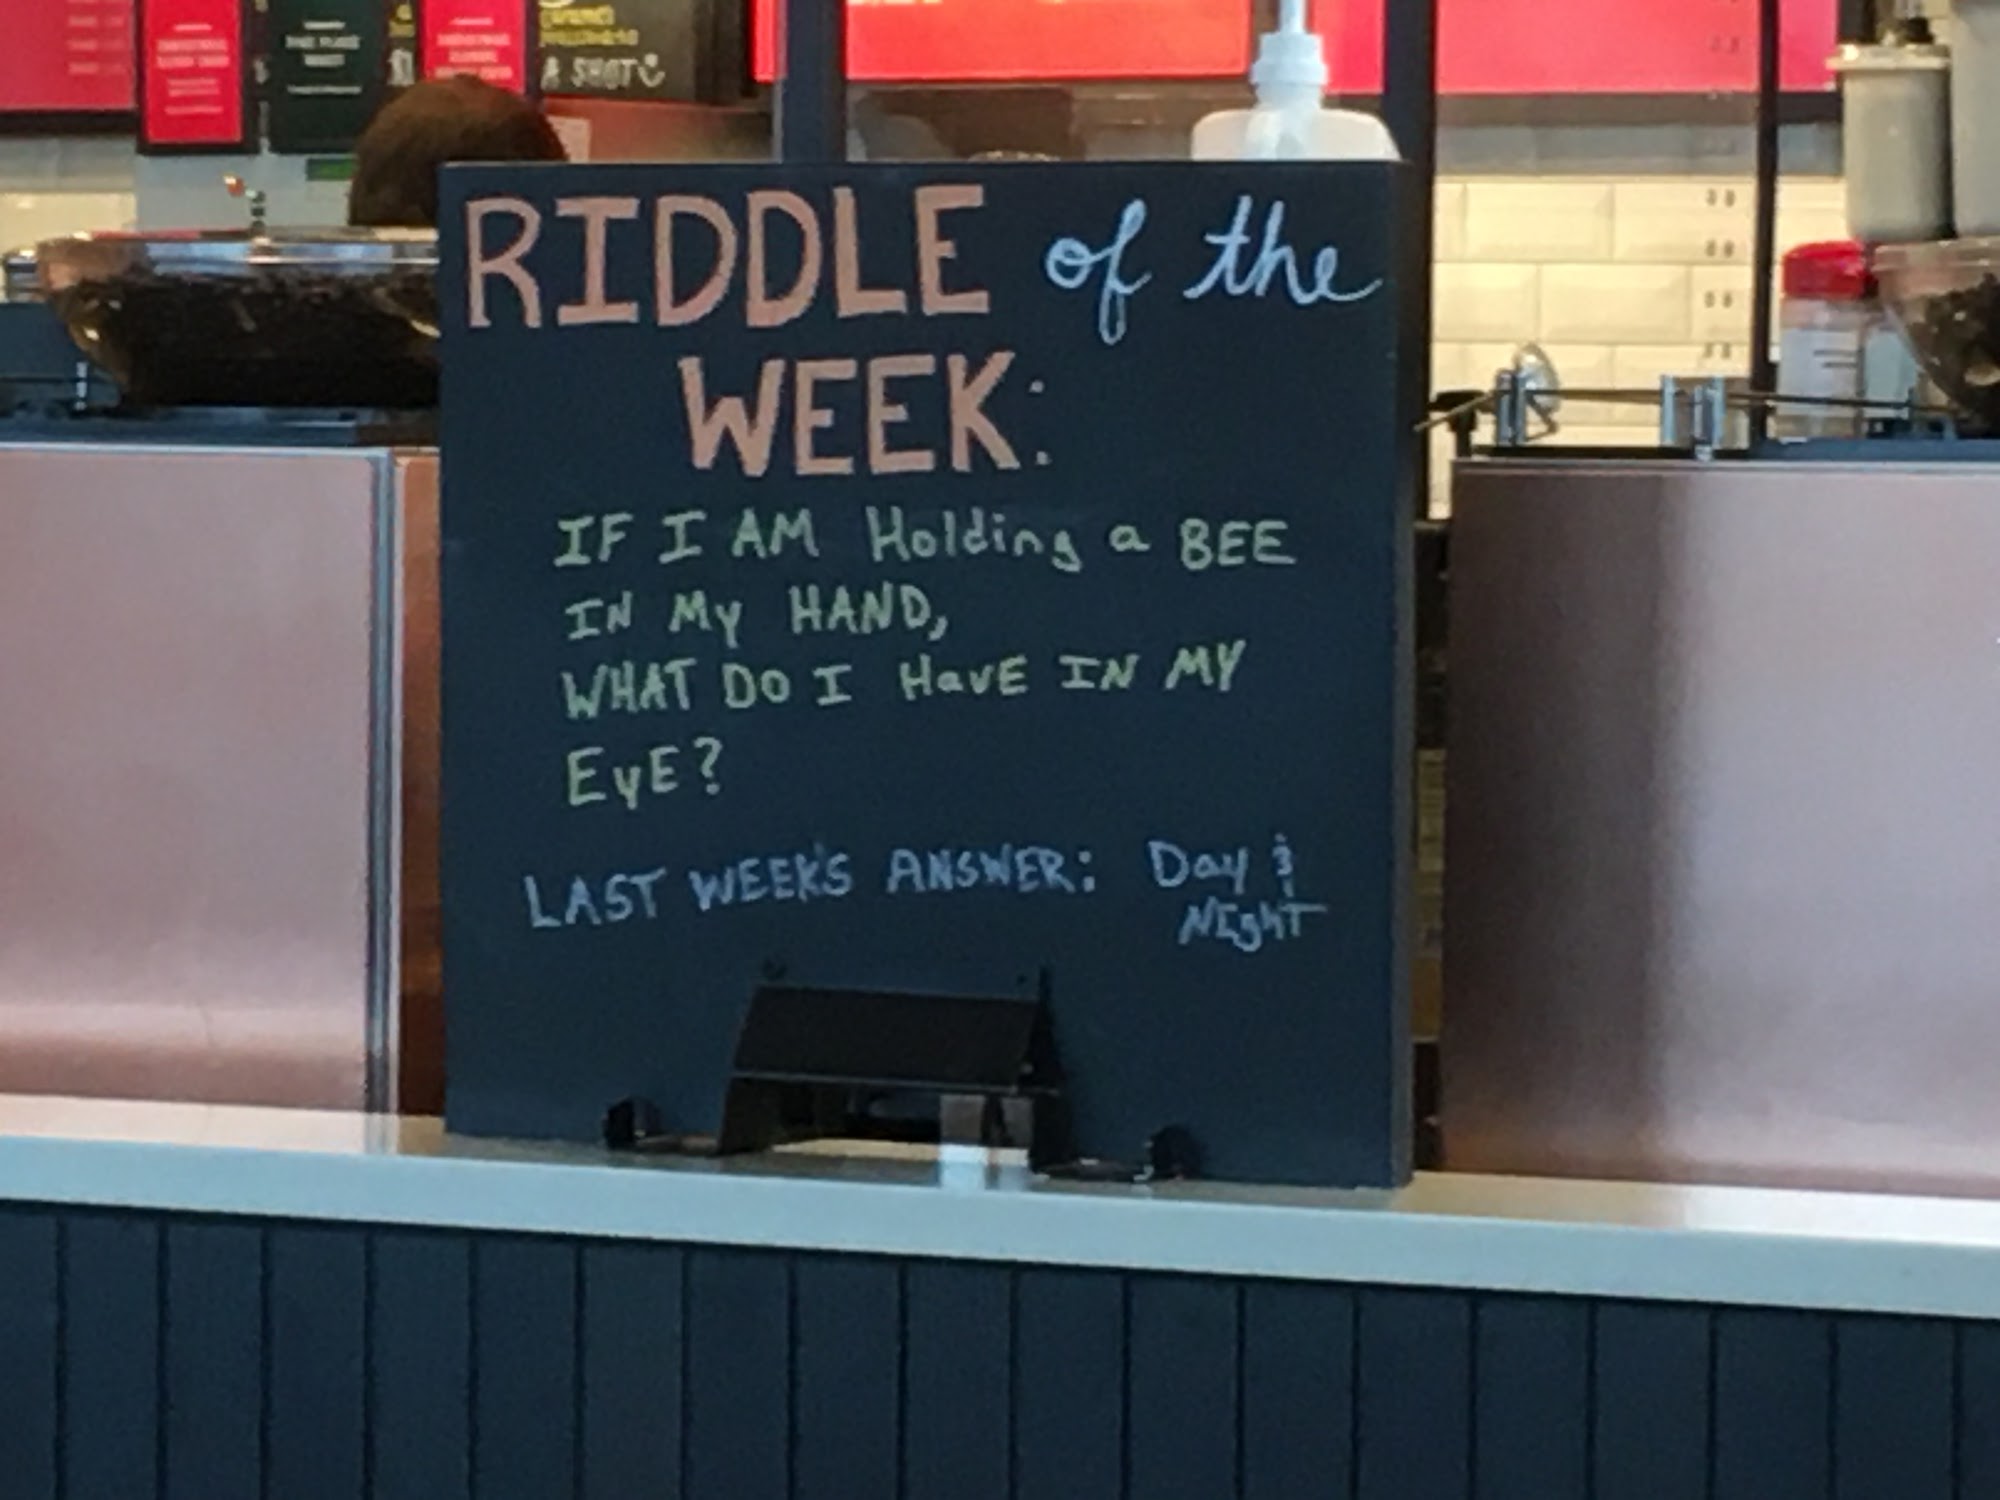 A SHOT
RIDDLE of the
WEEK:
IF I AM Holding a BEE
IN My HAND,
WHAT DO I HavE IN MY
EyE?
LAST WEEK'S ANSWER: Day &
NIgHT